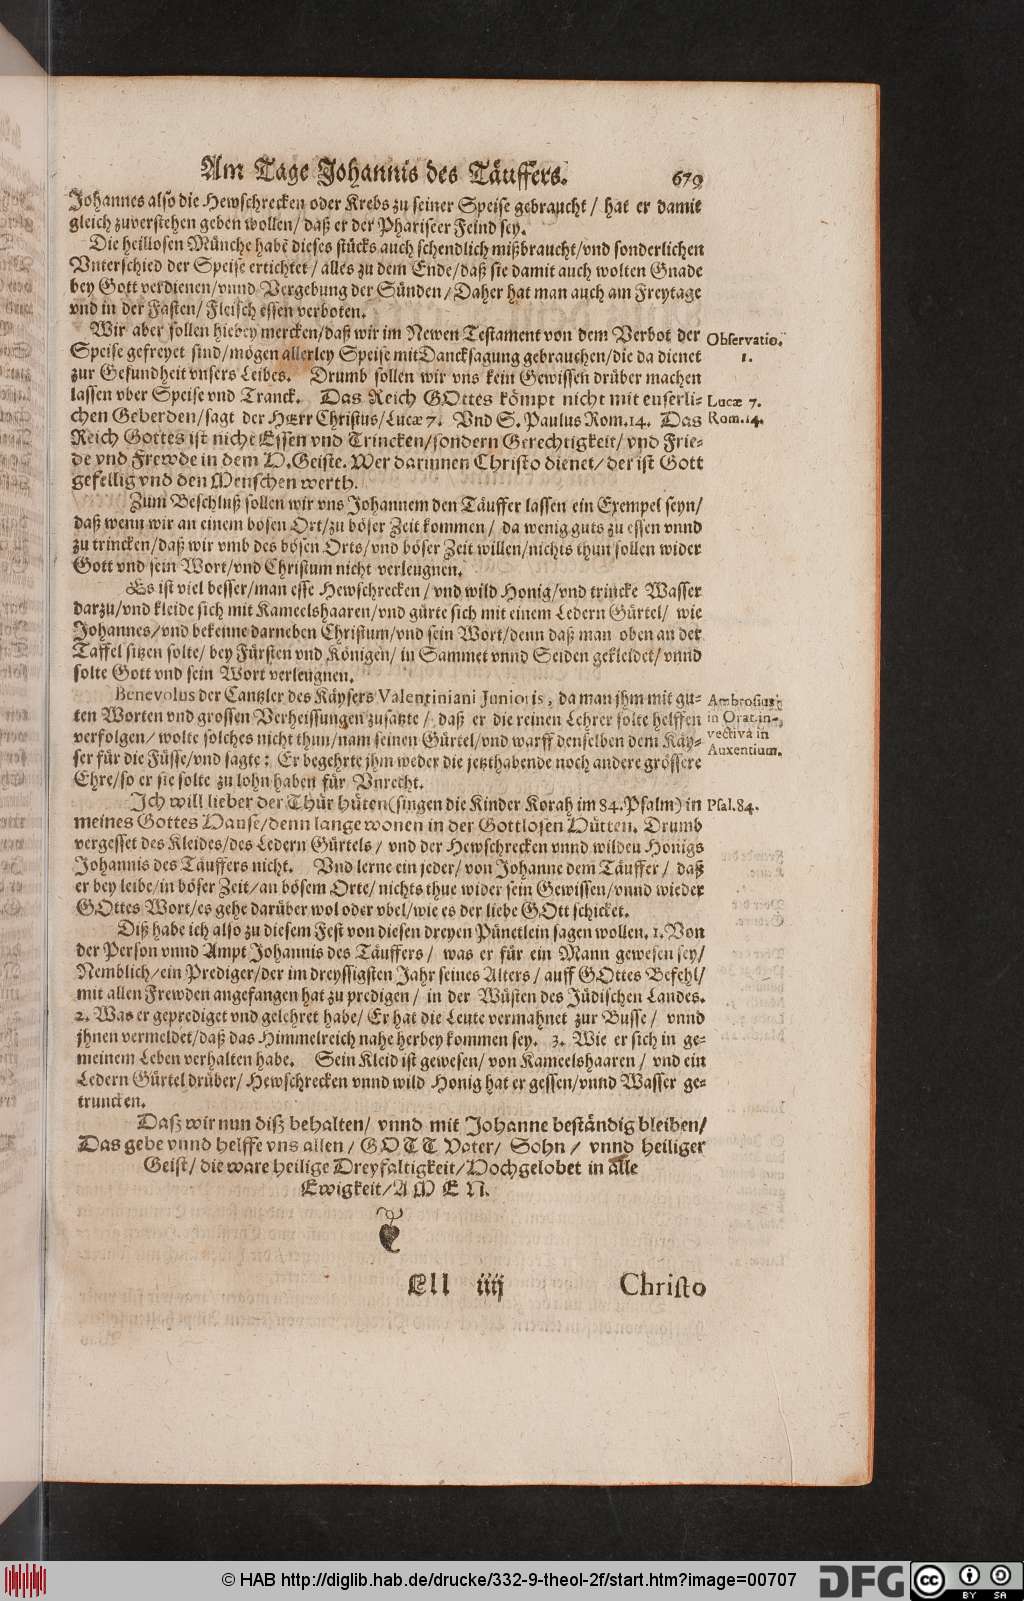 Am Tage Johannis des Täuffers. 679
Johannes also die Hewschrecken oder Krebs zu seiner Speise gebraucht / hat er damit
gleich zuverstehen geben wollen / daß er der Phariseer Feind sey.
Die heillosen Münche habẽ dieses stücks auch schendlich mißbraucht/vnd sonderlichen
Vnterschied der Speise ertichtet / alles zu dem Ende/daß sie damit auch wolten Gnade
bey Gott verdienen/vnnd Vergebung der Sünden / Daher hat man auch am Freytage
vnd in der Fasten/ Fleisch essen verboten.
Wir aber sollen hiebey mercken/daß wir im Newen Testament von dem Verbot der
Observatio.
Speise gefreyet sind/mögen allerley Speise mit Dancksagung gebrauchen/die da dienet
1.
zur Gesundheit vnsers Leibes. Drumb sollen wir vns kein Gewissen drüber machen
lassen vber Speise vnd Tranck. Das Reich GOttes kömpt nicht mit eusserli-
Lucæ 7.
chen Geberden/sagt der HErr Christus/Lucæ 7. Vnd S. Paulus Rom.14. Das
Rom.14.
Reich Gottes ist nicht Essen vnd Trincken/sondern Gerechtigkeit/ vnd Frie-
de vnd Frewde in dem H.Geiste. Wer darinnen Christo dienet/ der ist Gott
gefellig vnd den Menschen werth.
Zum Beschluß sollen wir vns Johannem den Täuffer lassen ein Exempel seyn/
daß wenn wir an einem bösen Ort/zu böser Zeit kommen / da wenig guts zu essen vnnd
zu trincken/daß wir vmb des bösen Orts/vnd böser Zeit willen/nichts thun sollen wider
Gott vnd sein Wort/vnd Christum nicht verleugnen.
Es ist viel besser/man esse Hewschrecken / vnd wild Honig/vnd trincke Wasser
darzu/vnd kleide sich mit Kameelshaaren/vnd gürte sich mit einem Ledern Gürtel/ wie
Johannes/vnd bekenne darneben Christum/vnd sein Wort/denn daß man oben an der
Taffel sitzen solte/ bey Fürsten vnd Königen/ in Sammet vnnd Seiden gekleidet/ vnnd
solte Gott vnd sein Wort verleugnen.
Benevolus der Cantzler des Käysers Valentiniani Junioris, da man jhm mit gu-
Ambrosius
ten Worten vnd grossen Verheissungen zusatzte / daß er die reinen Lehrer solte helffen
in Orat.in-
verfolgen/ wolte solches nicht thun/nam seinen Gürtel/vnd warff denselben dem Käy-
vectiva in
ser für die Füsse/vnd sagte: Er begehrte jhm weder die jetzthabende noch andere grössere
Auxentium.
Ehre/so er sie solte zu lohn haben für Vnrecht.
Ich will lieber der Thür hüten(singen die Kinder Korah im 84.Psalm) in
Psal.84.
meines Gottes Hause/denn lange wonen in der Gottlosen Hütten. Drumb
vergesset des Kleides/des Ledern Gürtels / vnd der Hewschrecken vnnd wilden Honigs
Johannis des Täuffers nicht. Vnd lerne ein jeder/ von Johanne dem Täuffer / daß
er bey leibe/in böser Zeit/an bösem Orte/ nichts thue wider sein Gewissen/vnnd wieder
GOttes Wort/es gehe darüber wol oder vbel/wie es der liebe GOtt schicket.
Diß habe ich also zu diesem Fest von diesen dreyen Pünctlein sagen wollen. 1. Von
der Person vnnd Ampt Johannis des Täuffers / was er für ein Mann gewesen sey/
Nemblich/ein Prediger/der im dreyssigsten Jahr seines Alters / auff GOttes Befehl/
mit allen Frewden angefangen hat zu predigen / in der Wüsten des Jüdischen Landes.
2. Was er geprediget vnd gelehret habe/ Er hat die Leute vermahnet zur Busse / vnnd
jhnen vermeldet/daß das Himmelreich nahe herbey kommen sey. 3. Wie er sich in ge-
meinem Leben verhalten habe. Sein Kleid ist gewesen/ von Kameelshaaren / vnd ein
Ledern Gürtel drüber/ Hewschrecken vnnd wild Honig hat er gessen/vnnd Wasser ge-
truncken.
Daß wir nun diß behalten/ vnnd mit Johanne beständig bleiben/
Das gebe vnnd helffe vns allen / GOTT Vater/ Sohn / vnnd heiliger
Geist / die ware heilige Dreyfaltigkeit/Hochgelobet in alle
Ewigkeit/AMEN.
Lll iiij Christo
© HAB http://diglib.hab.de/drucke/332-9-theol-2f/start.htm?image=00707
DFG
cc BY SA